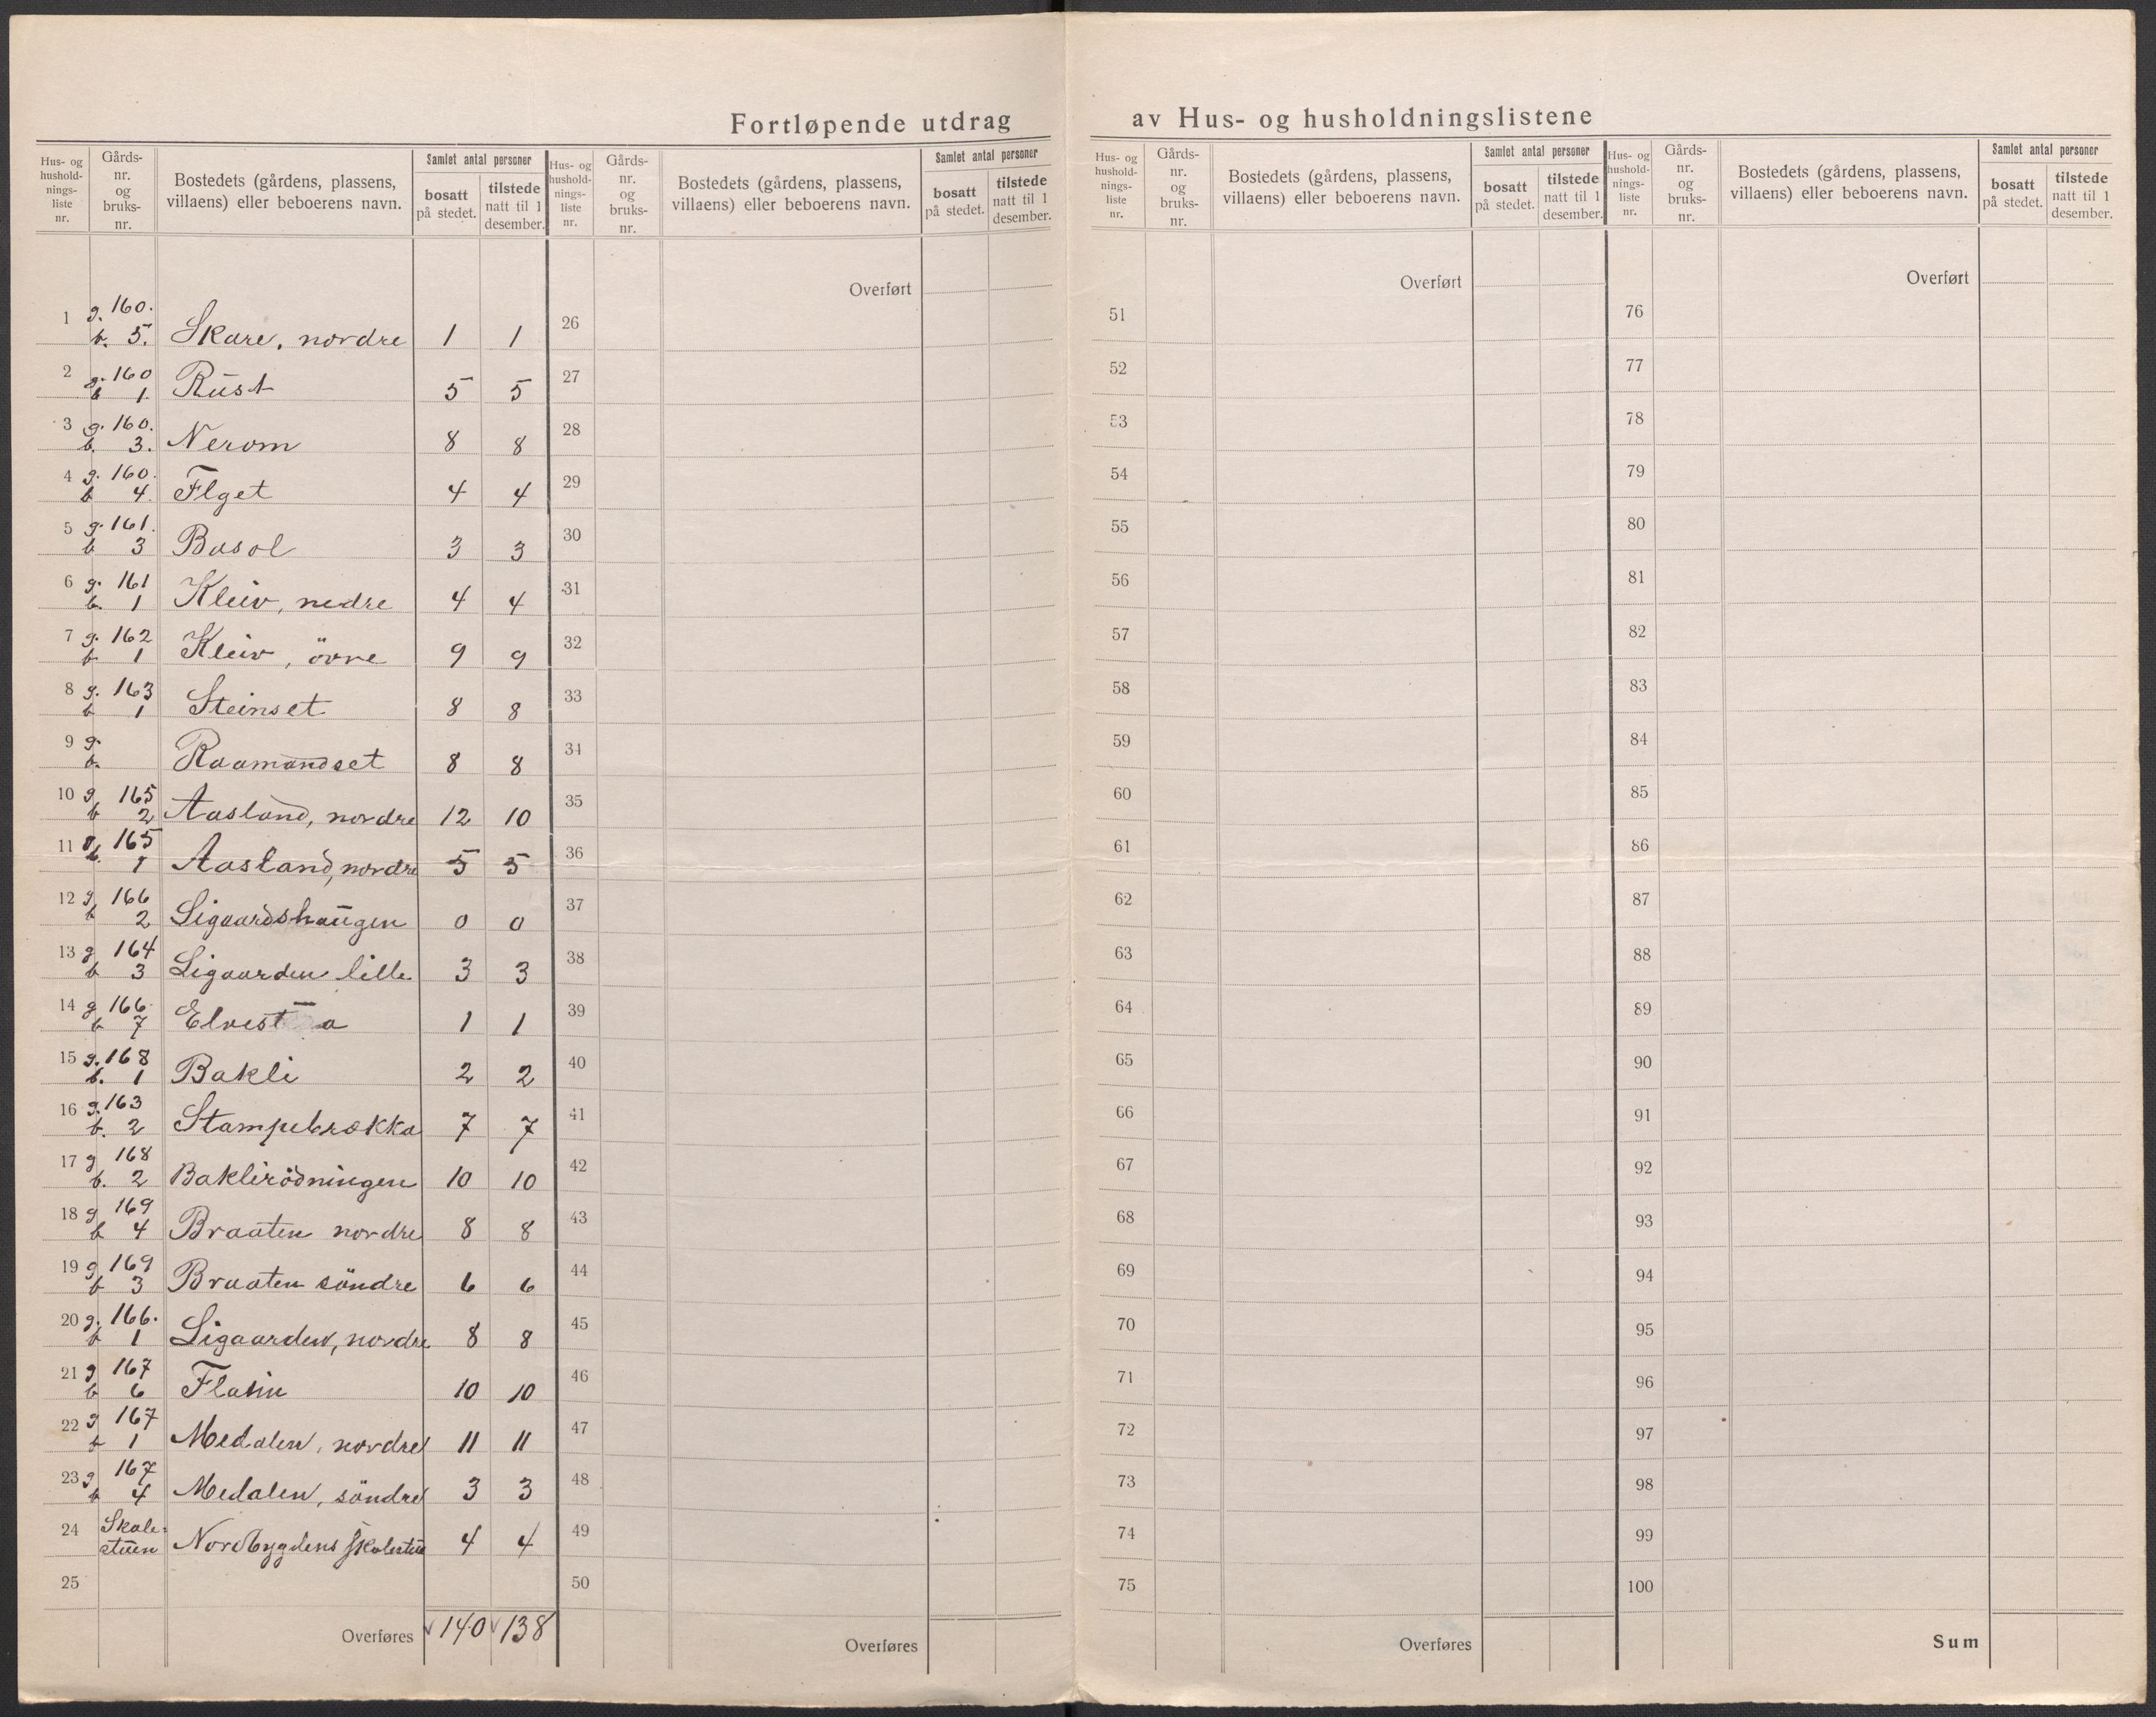 Fortløpende utdrag av Hus- og husholdningslistene
Hus- og husholdningsliste nr. | Gårds-nr. og bruks-nr. | Bostedets (gårdens, plassens, villaens) eller beboerens navn. | Samlet antal personer | bosatt på stedet. | tilstede natt til 1 desember.
Hus- og husholdningsliste nr. | Gårds-nr. og bruks-nr. | Bostedets (gårdens, plassens, villaens) eller beboerens navn. | Samlet antal personer | bosatt på stedet. | tilstede natt til 1 desember.
Hus- og husholdningsliste nr. | Gårds-nr. og bruks-nr. | Bostedets (gårdens, plassens, villaens) eller beboerens navn. | Samlet antal personer | bosatt på stedet. | tilstede natt til 1 desember.
Hus- og husholdningsliste nr. | Gårds-nr. og bruks-nr. | Bostedets (gårdens, plassens, villaens) eller beboerens navn. | Samlet antal personer | bosatt på stedet. | tilstede natt til 1 desember.
Overført Overført Overført
1 g. 160. b. 5. Skare, nordre 1 1 26 51 76
2 g. 160 b 1. Rust 5 5 27 52 77
3 g. 160. b. 3. Nerom 8 8 28 53 78
4 g. 160. b 4. Flget 4 4 29 54 79
5 g. 161. b 3 Basol 3 3 30 55 80
6 g. 161 b. 1 Kleiv, nedre 4 4 31 56 81
7 g. 162 b 1 Kleiv, övre 9 9 32 57 82
8 g. 163 b 1 Steinset 8 8 33 58 83
9 g. b. Raamundset 8 8 34 59 84
10 g 165 b 2 Aasland, nordre 12 10 35 60 85
11 g 165 b. 1 Aasland, nordre 5 5 36 61 86
12 g 166 b 2 Ligaardshaugen 0 0 37 62 87
13 g 164 b 3 Ligaarden lille 3 3 38 63 88
14 g 166 b 7 1 1 39 64 89
15 g. 168 b. 1 Bakli 2 2 40 65 90
16 g. 163 b. 2 Stampebrække 7 7 41 66 91
17 g 168 b. 2 Baklirödningen 10 10 42 67 92
18 g 169 b 4 Braaten nordre 8 8 43 68 93
19 g 169 b 3 Braaten söndre 6 6 44 69 94
20 g. 166. b 1 Ligaarden, nordre 8 8 45 70 95
21 g 167 b 6 Flatin 10 10 46 71 96
22 g 167 b 1 Medalen, nordre 11 11 47 72 97
23 g 167 b 4 Medalen, söndre 3 3 48 73 98
24 Skole-stuen Nordbygdens skolestue 4 4 49 74 99
25 50 75 100
Overføres 140 138 Overføres Overføres Sum